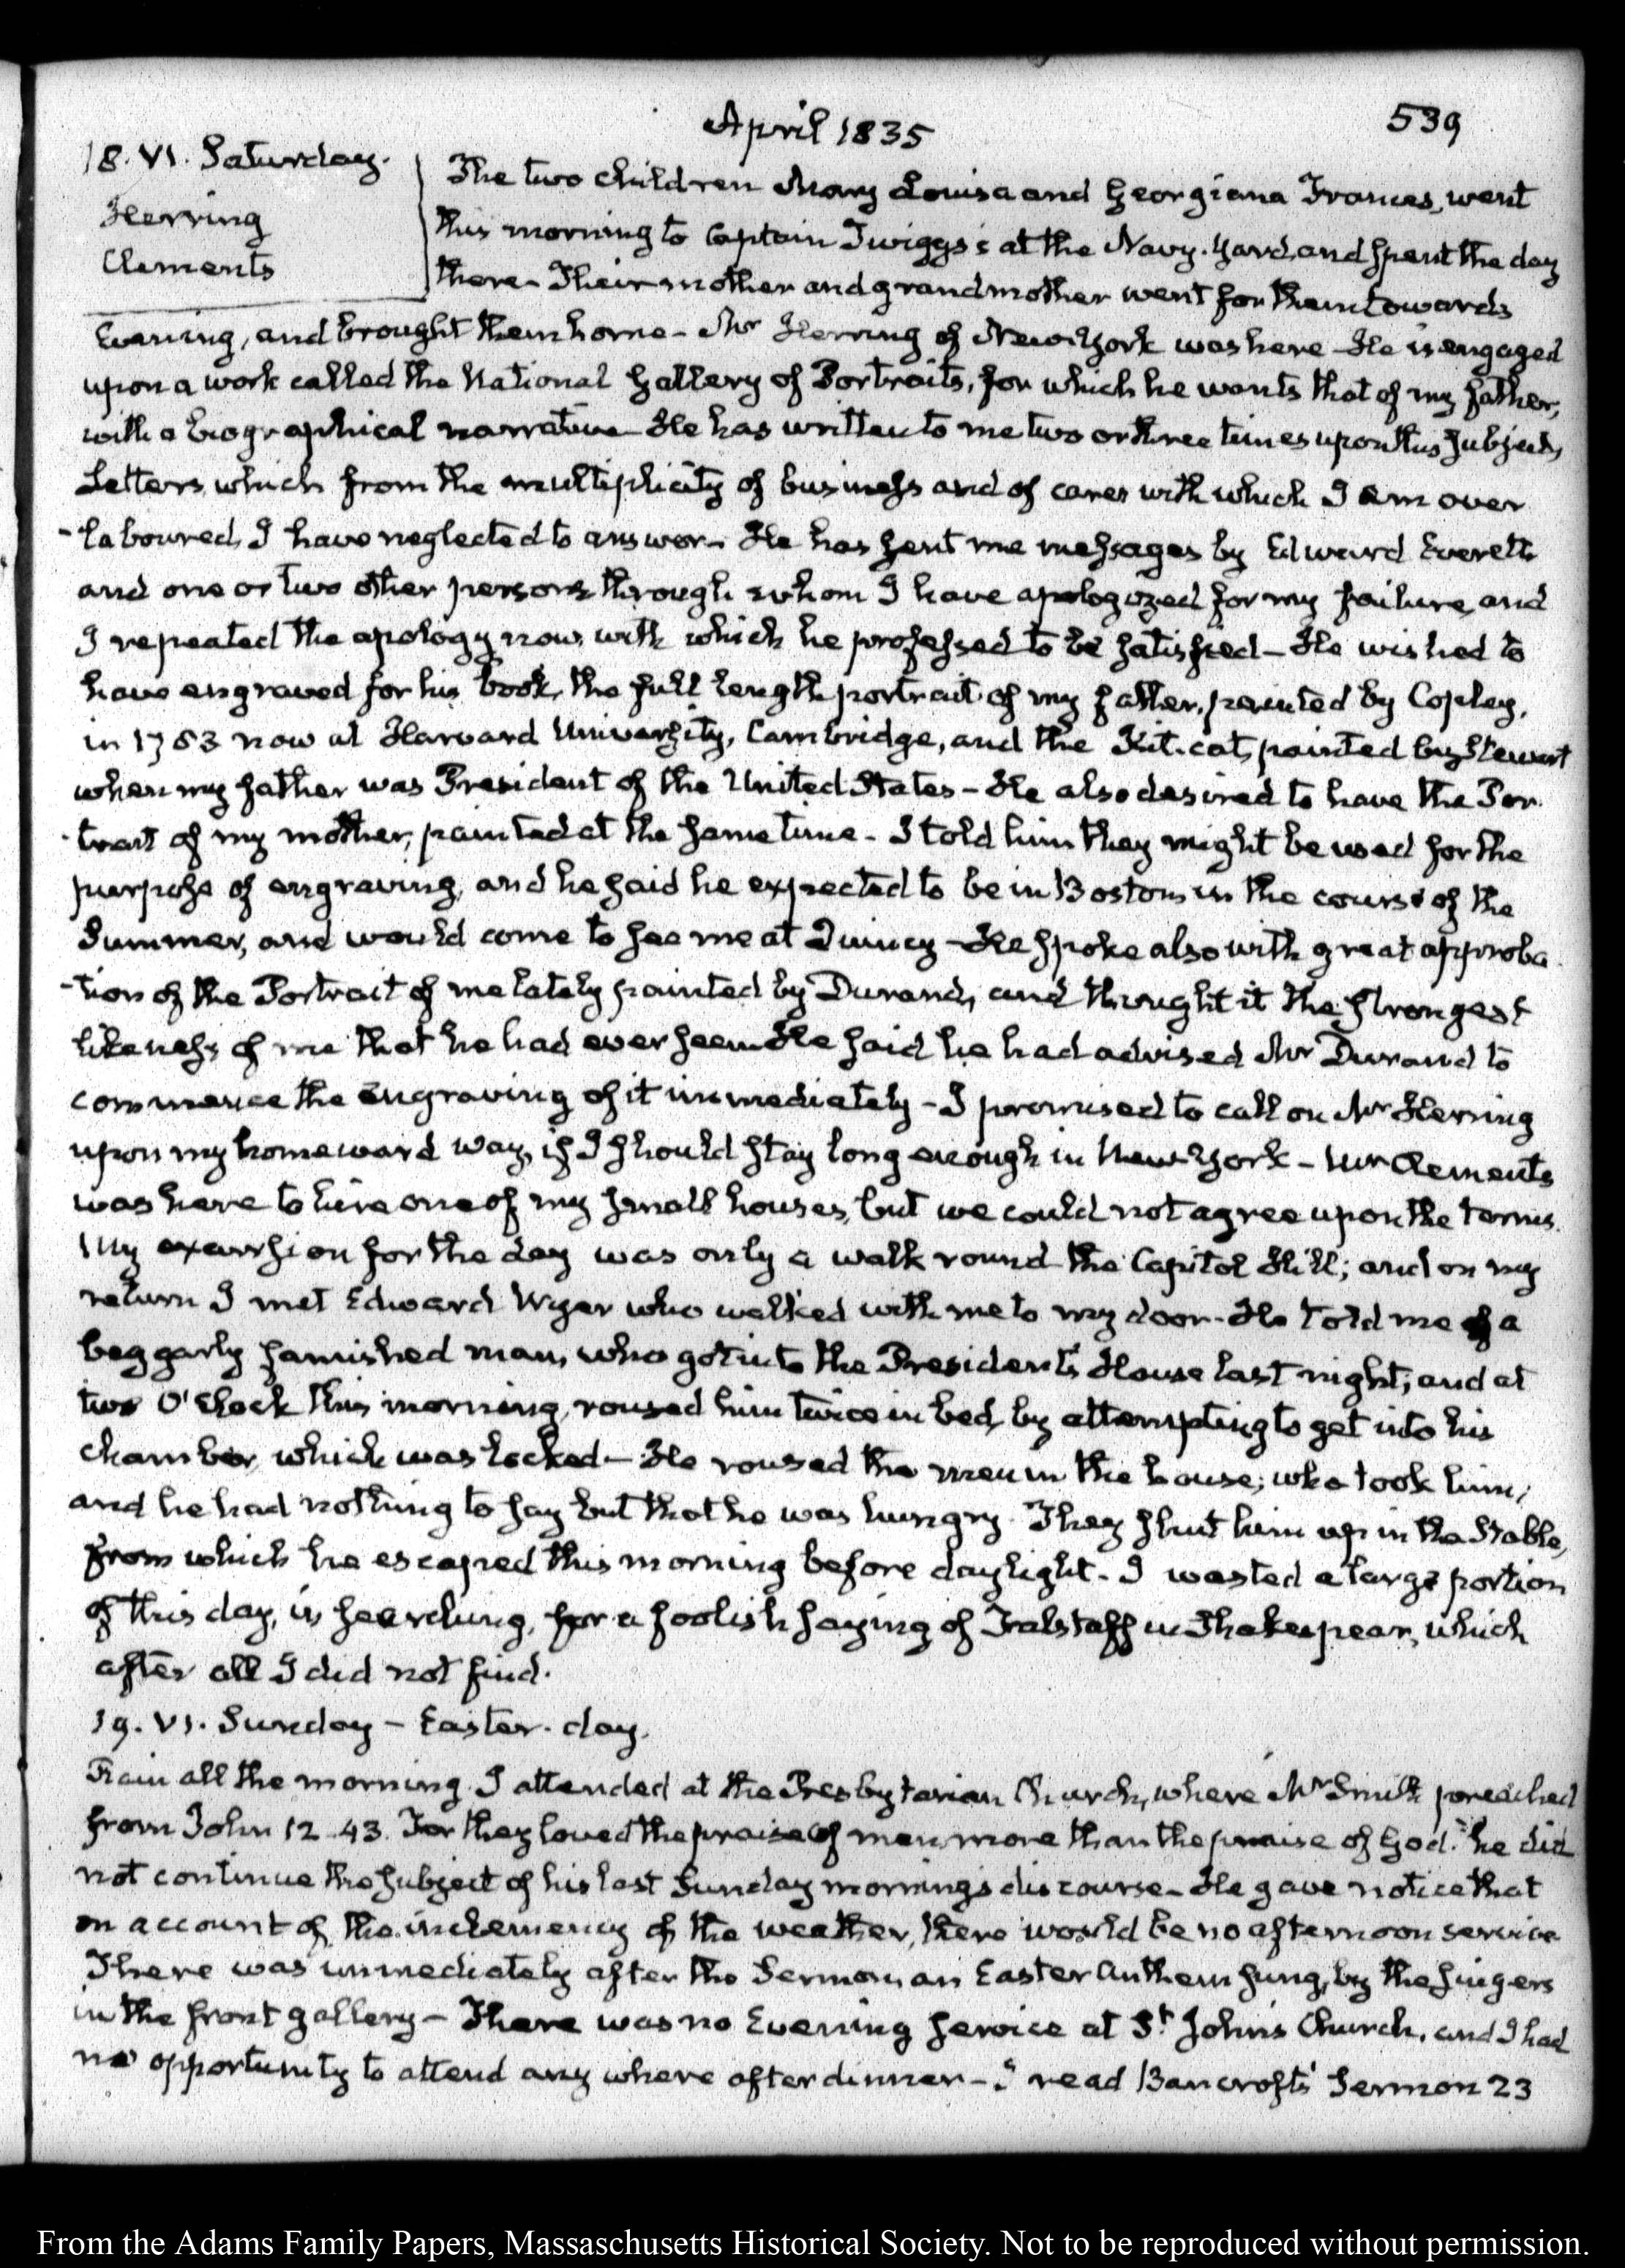 April 1835
539
18. VI. Saturday.
Herring
Clements
The two children Mary Louisa and Georgiana Frances, went
this morning to Captain Twiggs's at the Navy-Yard, and spent the day
there. Their mother and grandmother went for them towards
Evening, and brought them home — Mr Herring of New-York was here — He is engaged
upon a work called the National Gallery of Portraits, for which he wants that of my father,
with a biographical narrative — He has written to me two or three times upon this subject,
Letters which from the multiplicity of business and of cares with which I am over
-laboured, I have neglected to answer — He has sent me messages by Edward Everett
and one or two other persons through whom I have apologized for my failure, and
I repeated the apology now, with which he professed to be satisfied — He wished to
have engraved for his book, the full length portrait of my father, painted by Copley,
in 1783 now at Harvard University, Cambridge, and the Kit-cat, painted by Stewart
when my father was President of the United States — He also desired to have the Por
-trait of my mother, painted at the same time — I told him they might be used for the
purpose of engraving, and he said he expected to be in Boston in the course of the
Summer, and would come to see me at Quincy — He spoke also with great approba
-tion of the Portrait of me lately painted by Durand, and thought it the strongest
likeness of me that he had ever seen. He said he had advised Mr Durand to
commence the engraving of it immediately — I promised to call on Mr Herring
upon my homeward way, if I should stay long enough in New-York — Mr Clements
was here to hire one of my small houses, but we could not agree upon the terms.
My excursion for the day was only a walk round the Capitol Hill; and on my
return I met Edward Wyer who walked with me to my door. He told me of a
beggarly famished man, who got into the President's House last night, and at
two O'Clock this morning, roused him twice in bed, by attempting to get into his
chamber, which was locked — He roused the men in the house; who took him;
and he had nothing to say but that he was hungry. They shut him up in the Stable,
from which he escaped this morning before daylight. I wasted a large portion
of this day, in searching, for a foolish saying of Falstaff in Shakespear, which
after all I did not find.
19. VI. Sunday — Easter-day.
Rain all the morning. I attended at the Presbyterian Church, where Mr Smith preached
from John 12. 43. For they loved the praise of men, more than the praise of God." he did
not continue the subject of his last Sunday morning's discourse — He gave notice that
on account of the inclemency of the weather, there would be no afternoon service
There was immediately after the Sermon, an Easter Anthem sung, by the singers
in the front gallery — There was no Evening service at St John's Church, and I had
no opportunity to attend any where after dinner — I read Bancroft's Sermon 23
From the Adams Family Papers, Massaschusetts Historical Society. Not to be reproduced without permission.